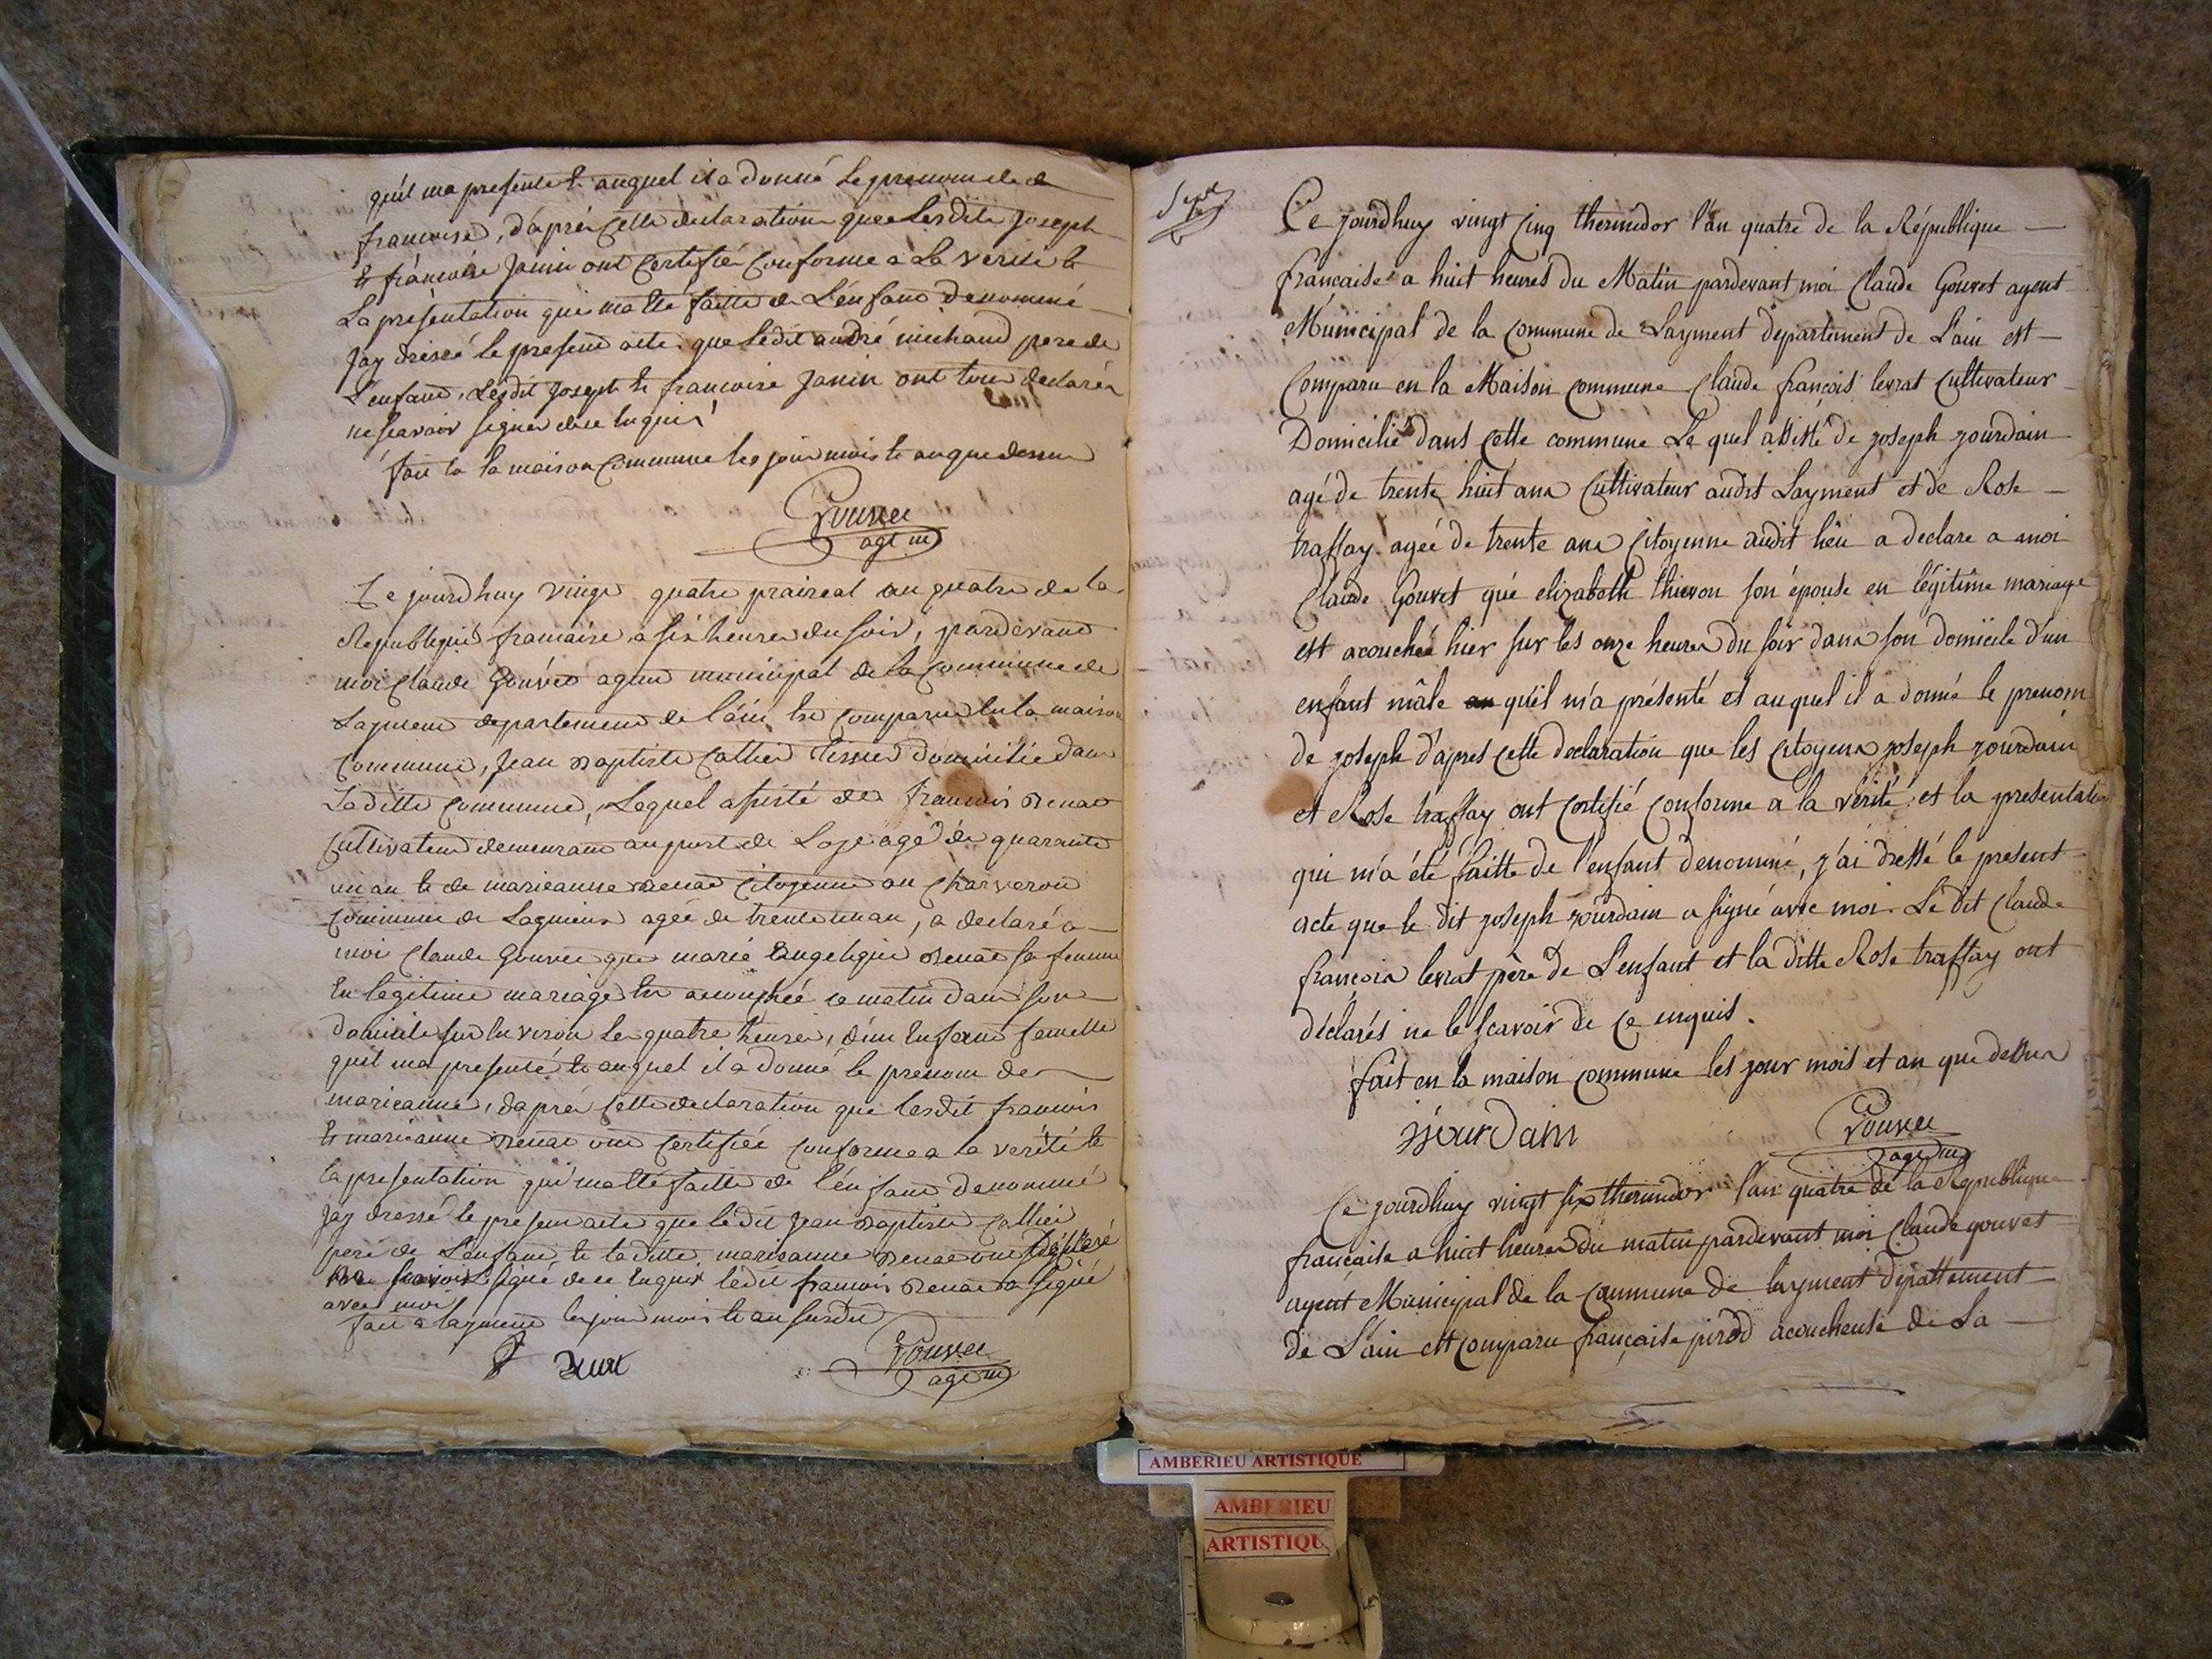 quil ma presente et auquel il a donné le prenom de
francoise, d'aprés cette declaration que lesdits Joseph
et francoise Janin ont certifiés conforme a la verité et
La présentation qui ma été faitte de L'enfant denommé
Jay dréssé le present acte que ledit andré michaud pere de
L'enfant, Lesdit Joseph et francoise Janin ont tous declarés
ne scavoir signer de ce enquis
fait en la maison commune les jour mois et an que dessus
Gouvet
agt m
Ce jourdhuy vingt quatre prairéal an quatre de la
Republique francaise a six heures du soir, pardevant
moi Claude Gouvet agent municipal de la commune de
Lagnieu departement de l'ain est comparu en la maison
commune, Jean Baptiste Callier tissier domicilié dans
Laditte commune, Lequel assisté de francois Renac
Cultivateur demeurant au port de Loye agé de quarante
un an et de marieanne Renac Citoyenne au Charveron
commune de Lagnieu agée de trente un an, a declaré a
moi Claude Gouvet que marie angelique Renac sa femme
en legitime mariage est acouchée ce matin dans son
domicile sur environ les quatre heures, d'un enfant femelle
quil ma presenté et auquel il a donné le prenom de
marieanne, d'aprés cette declaration que lesdit francois
et marieanne Renac ont certifiée conforme a la verité et
la presentation qui ma été faitte de l'enfant denommé
Jay dressé le present acte que ledit Jean Baptiste Callier
pere de L'enfant et laditte marieanne Renac ont déclaré
ne scavoir signé de ce enquis ledit francois Renac a signé
avec moi
fait a lagnieu les jour mois et an susdit
Gouvet
agt m
Ce jourdhuy vingt Cinq thermidor l'an quatre de la République
française a huit heures du Matin pardevant moi Claude Gouvet agent
Municipal de la Commune de Layment departement de L'ain est
Comparu en la Maison commune Claude françois levrat Cultivateur
Domicilié dans Cette commune Le quel assisté de joseph jourdain
agé de trente huit ans Cultivateur audit Layment et de Rose
traffay agée de trente ans Citoyenne audit lieu a declare a moi
Claude Gouvet qué elizabeth thievon son épouse en légitime mariage
est acouchée hier sur les onze heures du soir dans son domicile d'un
enfant mâle qu'il m'a présenté et auquel il a donné le prenom
de joseph d'apres cette declaration que les Citoyens joseph jourdain
et Rose traffay ont certifié conforme a la vérité et la presentation
qui m'a été faitte de l'enfant denommé, j'ai dressé le present
acte que le dit joseph jourdain a signé avec moi. Le dit Claude
françois levrat père de L'enfant et la ditte Rose traffay ont
déclarés ne le scavoir de ce enquis.
fait en la maison commune les jour mois et an que dessus
jjourdain
Gouvet
agt m
Ce jourdhuy vingt six thermidor l'an quatre de la Republique
française a huit heures du matin pardevant moi Claude gouvet
agent Municipal de la commune de layment départtement
de L'ain est comparu françoise pirod acoucheuse de La
AMBERIEU ARTISTIQUE
AMBERIEU
ARTISTIQU